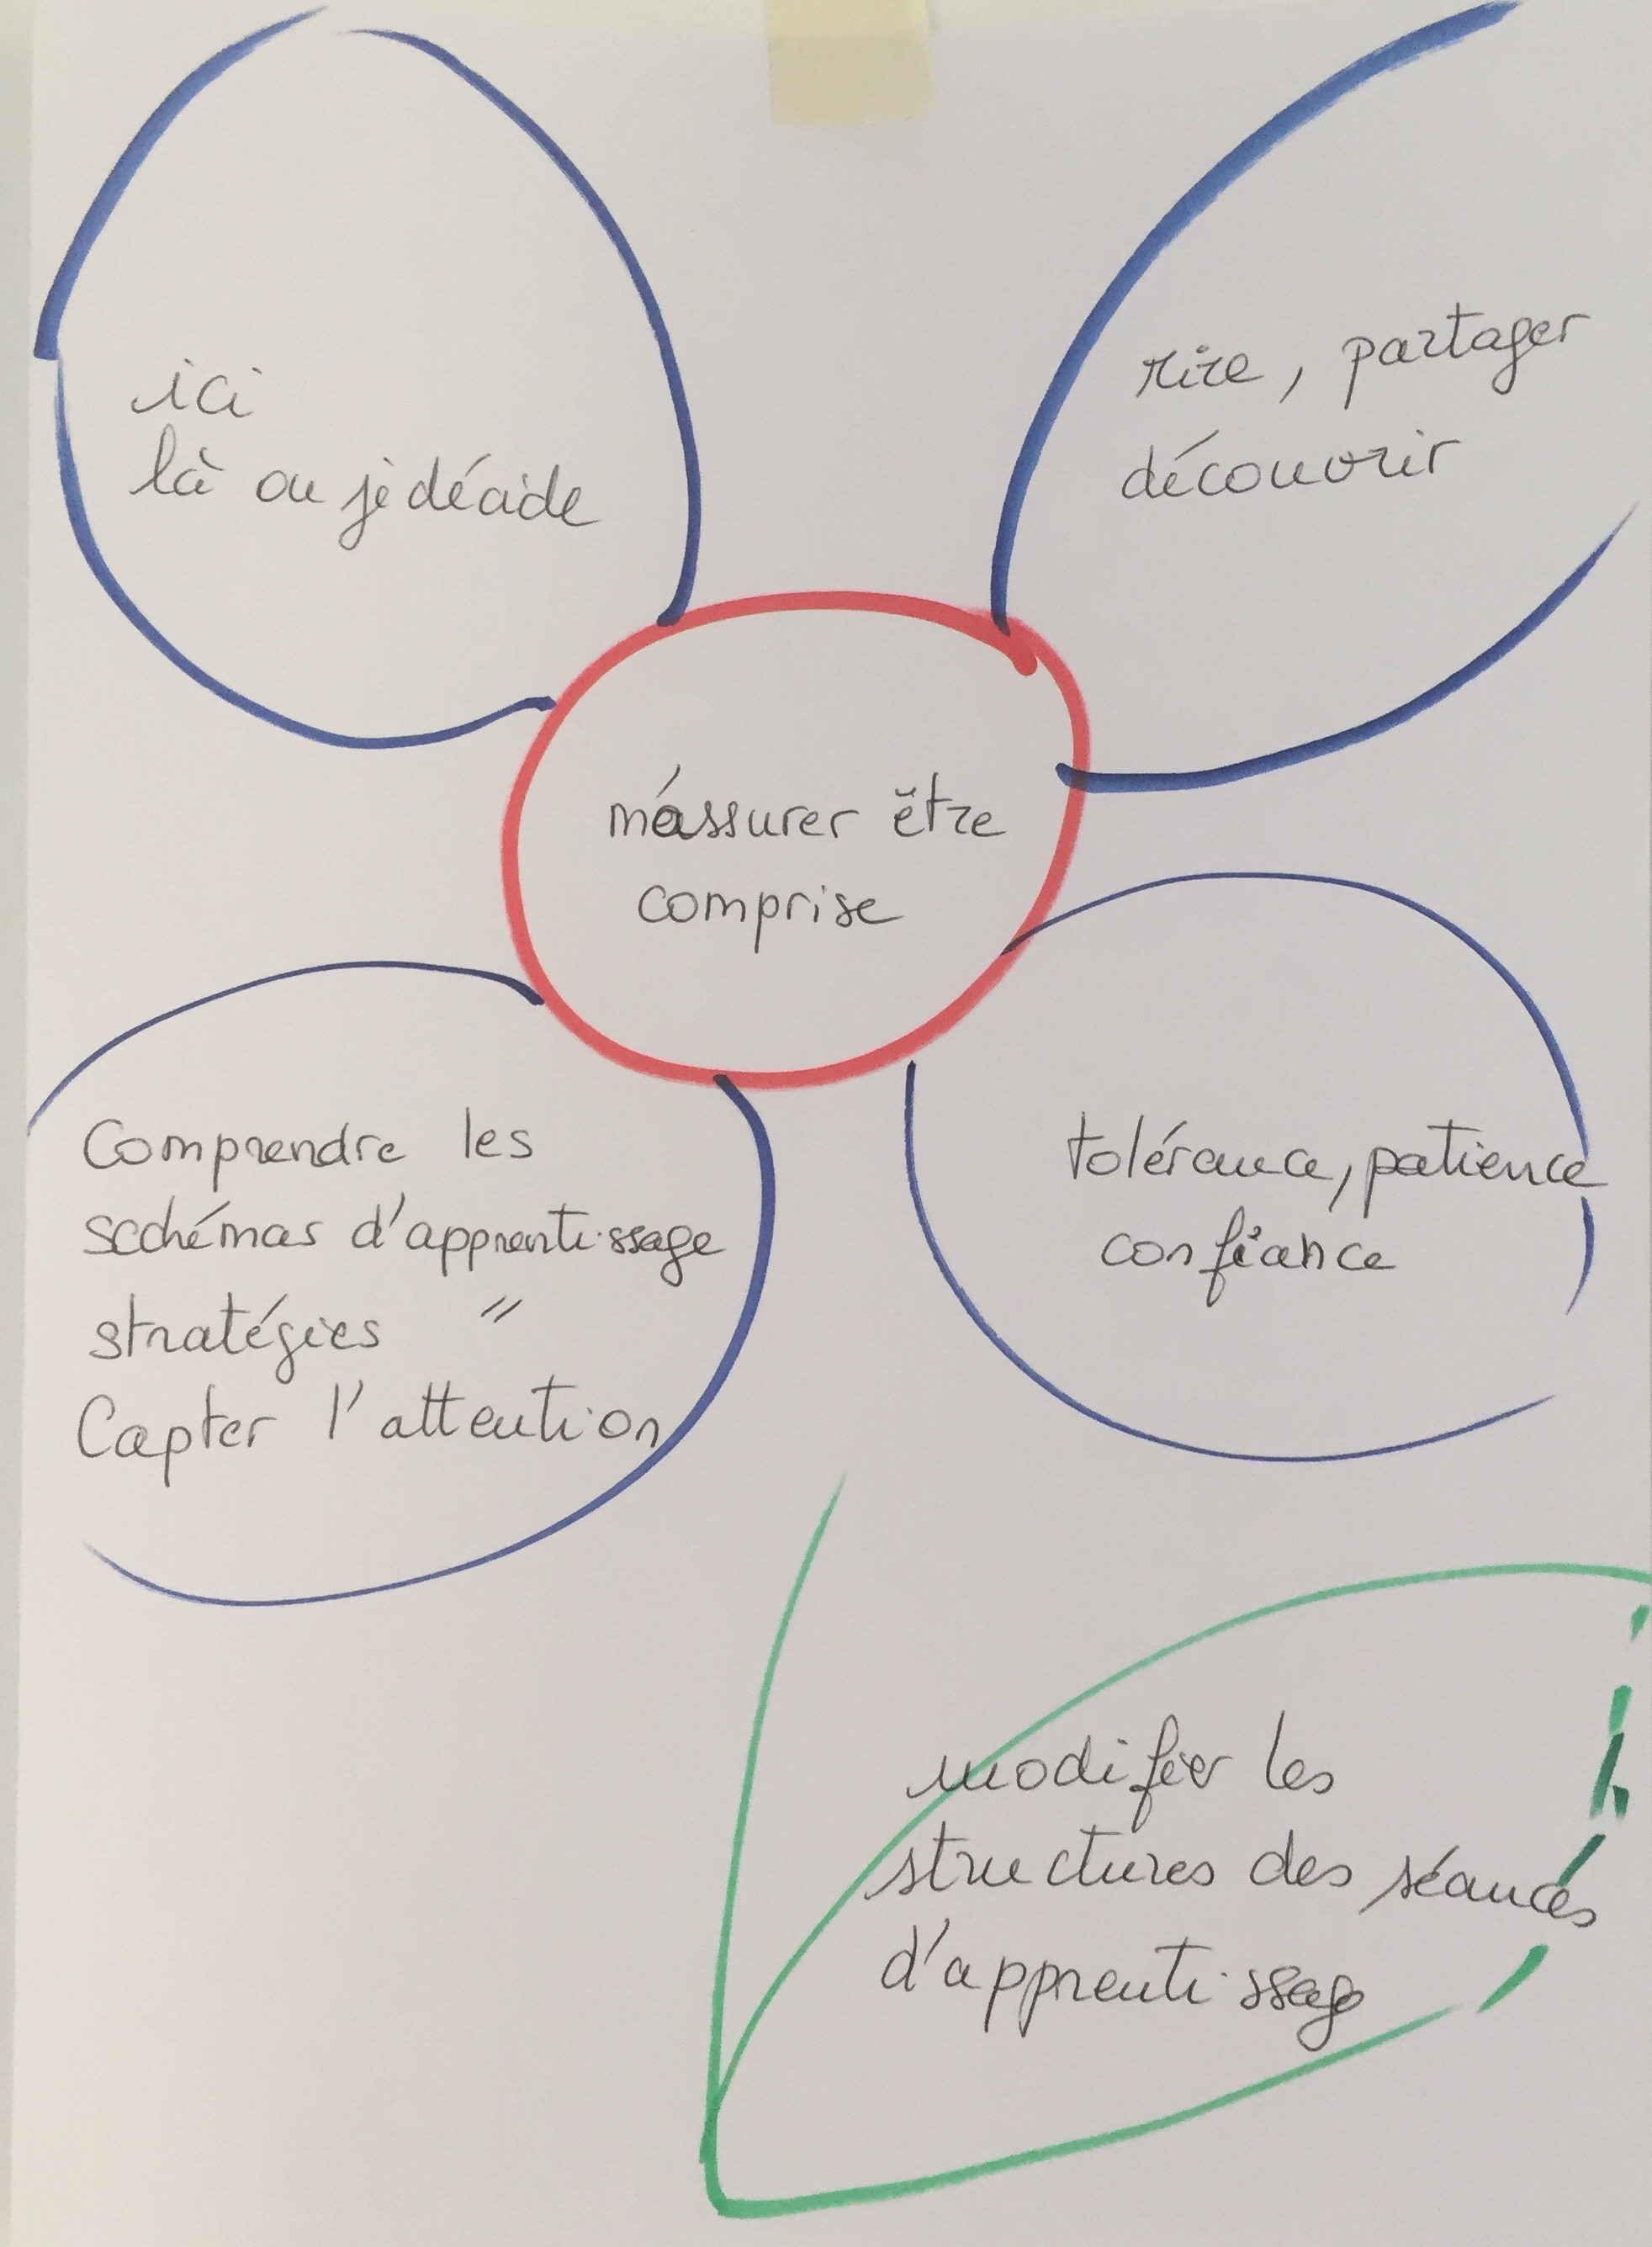 ici
là ou je décide
rire, partager
découvrir
m'assurer être
comprise
Comprendre les
schémas d'apprentissage
stratégies "
Capter l'attention
tolérance, patience
confiance
modifier les
structures des séances
d'apprentissage